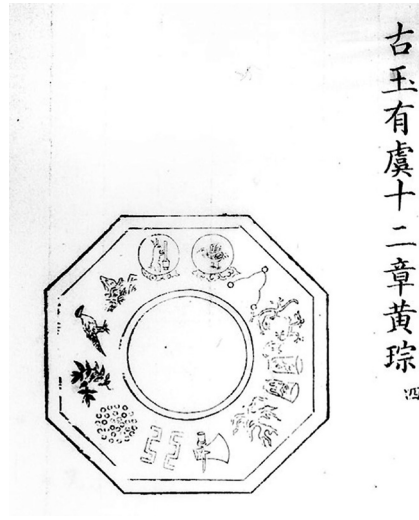 古玉有虞十二章黄琮
四